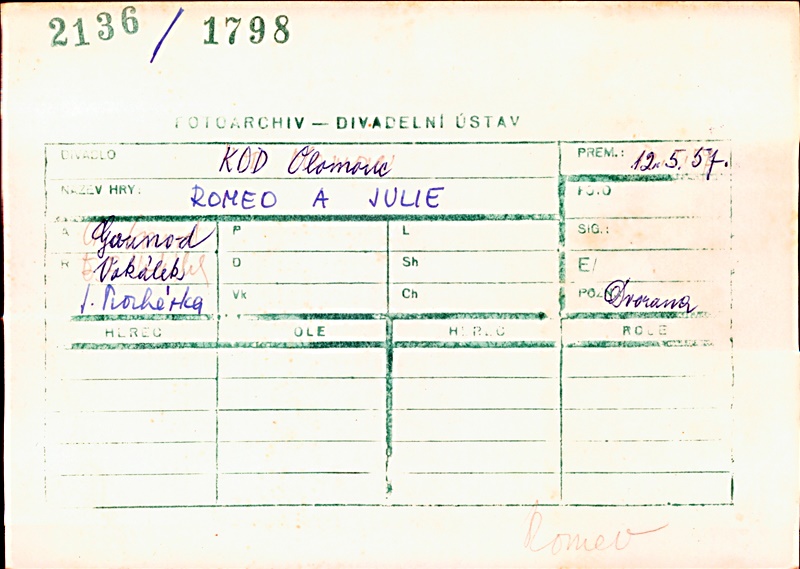 2136 / 1798
FOTOARCHIV — DIVADELNÍ ÚSTAV
DIVADLO KOD Olomouc PREM.: 12.5.57.
NÁZEV HRY: ROMEO A JULIE FOTO
A Gounod P L SIG.:
R Vokálek D Sh E/
J. Vk Ch POZN. Dvorana
HEREC ROLE HEREC ROLE
Romeo